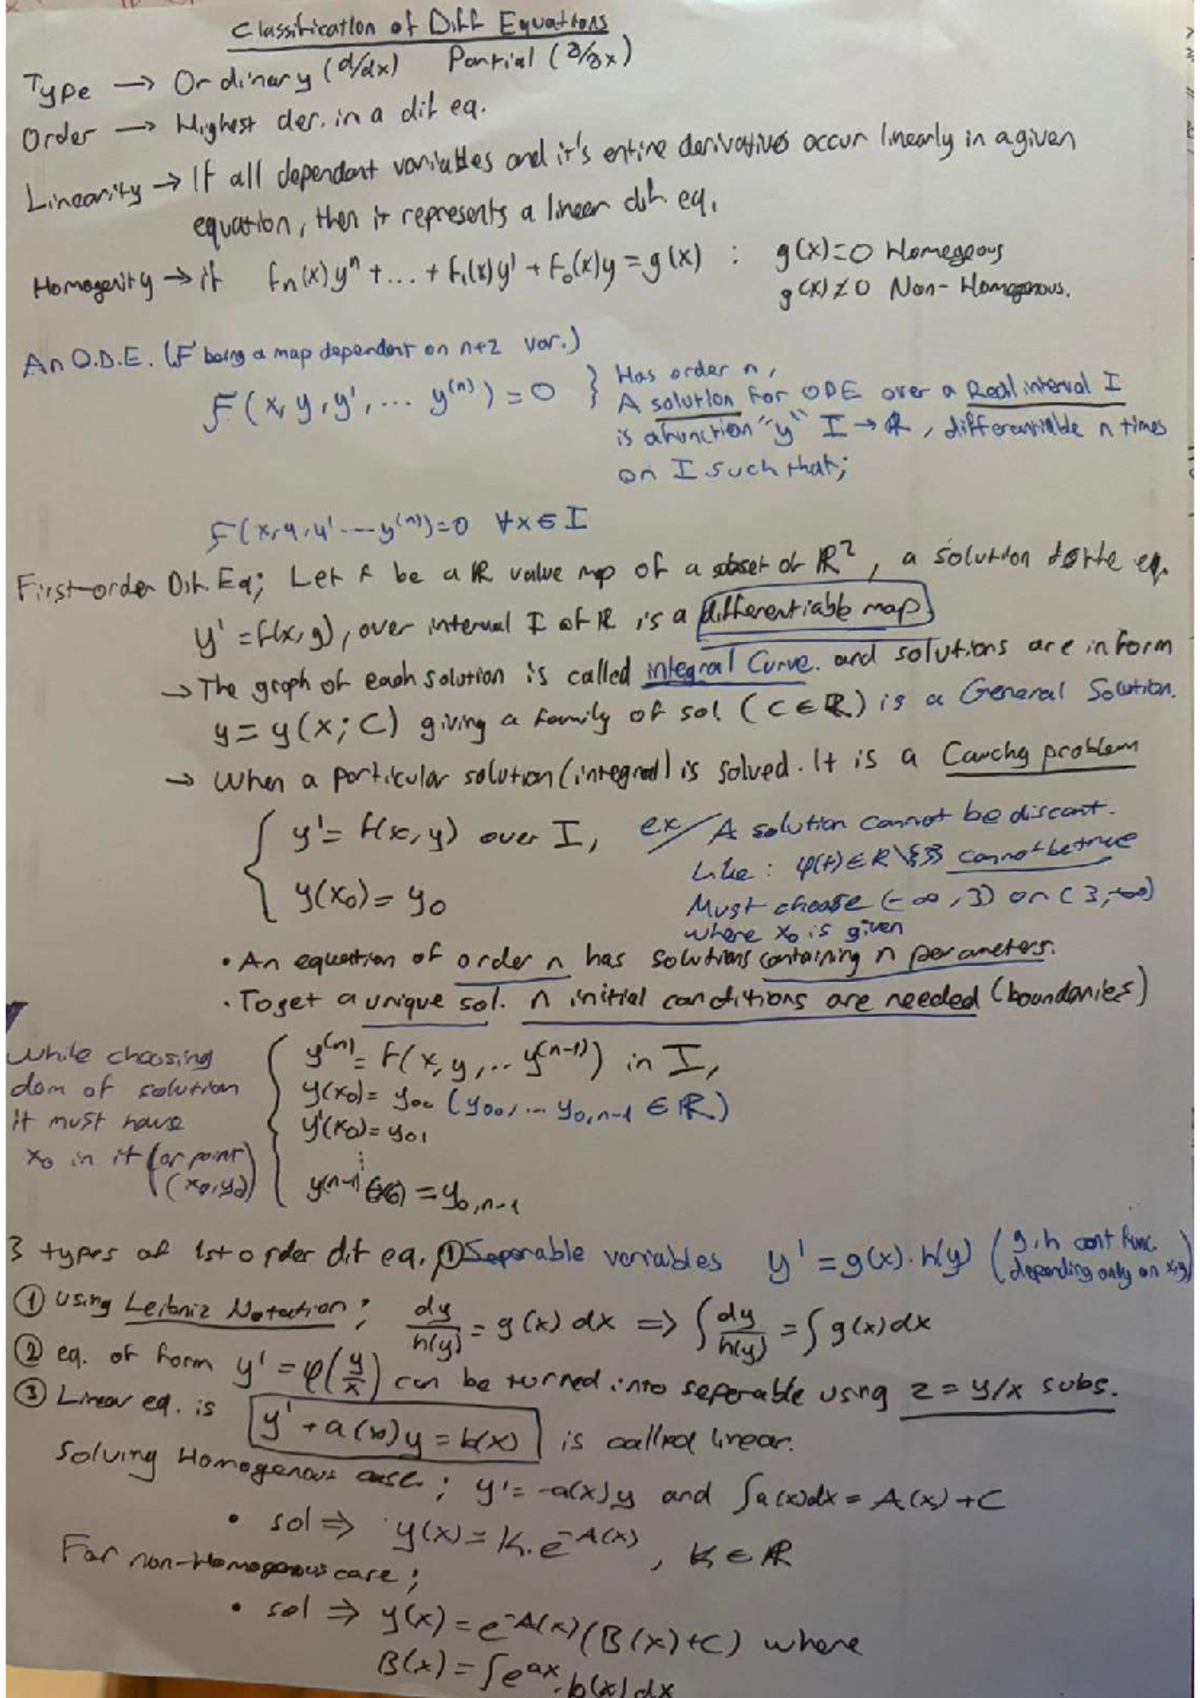 Classification of Diff Equations
Type → Ordinary (d/dx) Partial (∂/∂x)
Order → Highest der. in a dif eq.
Linearity → If all dependant variables and it's entire derivatives occur linearly in a given
equation, then it represents a linear dif. eq.
Homogenity → if fn(x)yⁿ + ... + f₁(x)y' + f₀(x)y = g(x) : g(x)=0 Homegeous
g(x)≠0 Non-Homogenous.
An O.D.E. (F being a map dependent on n+2 var.)
F(x, y, y', ... y⁽ⁿ⁾) = 0 } Has order n,
A solution for ODE over a Real interval I
is a function "y" I → R, differentiable n times
on I such that;
F(x, y, y' ... y⁽ⁿ⁾)=0 ∀x∈I
First-order Dif. Eq; Let f be a R value map of a subset of R², a solution to the eq.
y' = f(x,y), over interval I of R is a differentiable map
→ The graph of each solution is called integral Curve. and solutions are in form
y = y(x; C) giving a family of sol. (C∈R) is a General Solution.
→ When a particular solution (integral) is solved. It is a Cauchy problem
{ y' = f(x, y) over I,
y(x₀) = y₀
ex/ A solution cannot be discont.
Like: φ(t)∈R\{3} cannot be true
Must choose (-∞, 3) or (3, +∞)
where x₀ is given
• An equation of order n has solutions containing n parameters.
• To get a unique sol. n initial conditions are needed (boundaries)
While choosing
dom of solution
it must have
x₀ in it (or point)
(x₀,y₀)
{ y⁽ⁿ⁾ = f(x, y, ... y⁽ⁿ⁻¹⁾) in I,
y(x₀) = y₀₀ (y₀₀, ... y₀,n-1 ∈ R)
y'(x₀) = y₀₁
⋮
y⁽ⁿ⁻¹⁾(x₀) = y₀,n-1
3 types of 1st order dif eq. ① Seperable variables y' = g(x).h(y) (g, h cont func.
depending only on x,y)
① Using Leibniz Notation; dy/h(y) = g(x) dx ⇒ ∫dy/h(y) = ∫g(x)dx
② eq. of form y' = φ(y/x) can be turned into seperable using z = y/x subs.
③ Linear eq. is y' + a(x)y = b(x) is called linear.
Solving Homogenous case; y' = -a(x)y and ∫a(x)dx = A(x)+C
• sol ⇒ y(x) = K.e^-A(x), K∈R
For non-Homogenous case;
• sol ⇒ y(x) = e^-A(x) (B(x)+C) where
B(x) = ∫e^ax . b(x) dx